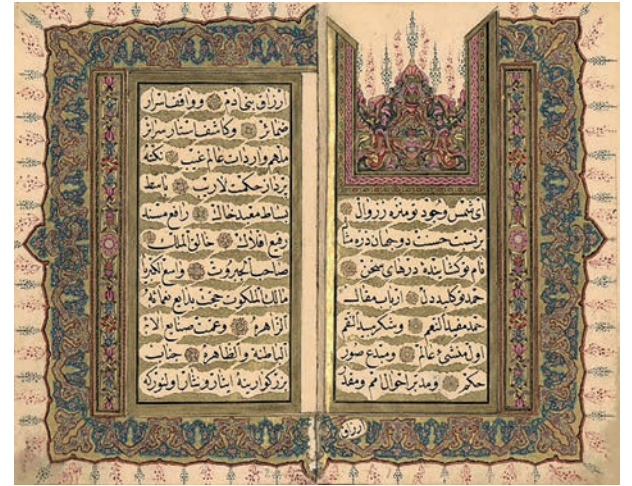 ای شمس وجود تو منزه ززوال
حسنت دو جهان ذره مثال
نام تو کشاینده درهای سخن
حمد تو کلید ارباب مقال
حمد مفید النعم وشکر مبید النقم
اول منشئ عالم ومبدع صور
حکم ومدبر احوال امم ومقدر
ارزاق
ارزاق بنی آدم وواقف اسرار
ضمائر وکاشف استار سرائر
ملهم واردات عالم غیب نکته
پرداز حکمت لاریب باسط
بساط معبد خاک رافع مسند
رفیع افلاک خالق الملک
صاحب الجبروت واسع الکبریا
مالک الملکوت بدایع نعمائه
الزاهرة وعمت صنایع الائه
الباطنة والظاهرة جناب
بزرکوارینه ایثار ونثار اولنور که